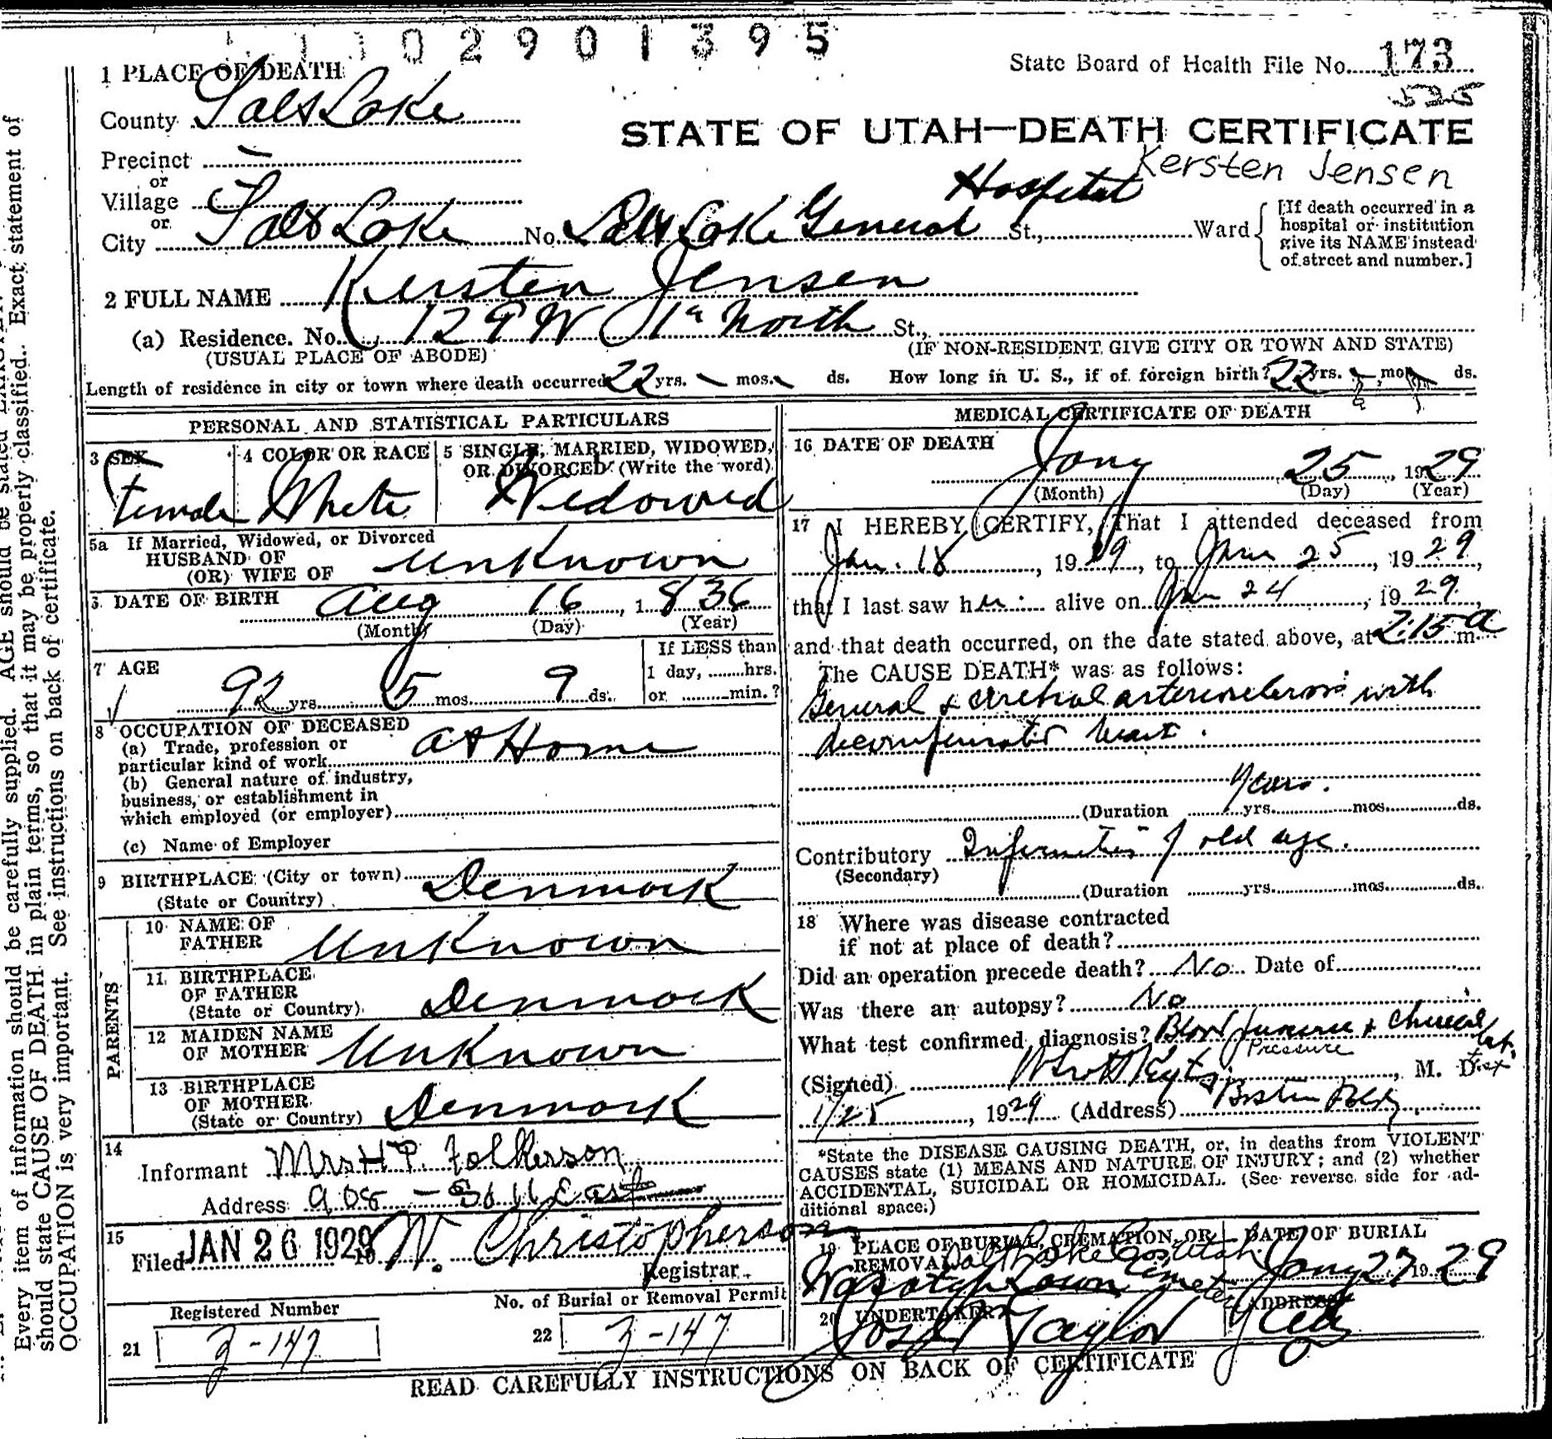 1102901395
State Board of Health File No. 173
535
1 PLACE OF DEATH
County Salt Lake
STATE OF UTAH—DEATH CERTIFICATE
Kersten Jensen
Precinct
or
Village
or
City Salt Lake No. Salt Lake General Hospital St., Ward
[If death occurred in a
hospital or institution
give its NAME instead
of street and number.]
2 FULL NAME Kersten Jensen
(a) Residence. No. 129 W 1st North St.,
(USUAL PLACE OF ABODE) (IF NON-RESIDENT GIVE CITY OR TOWN AND STATE)
Length of residence in city or town where death occurred 22 yrs. mos. ds. How long in U. S., if of foreign birth? 22 yrs. mos. ds.
PERSONAL AND STATISTICAL PARTICULARS
3 SEX
Female
4 COLOR OR RACE
White
5 SINGLE, MARRIED, WIDOWED,
OR DIVORCED (Write the word)
Widowed
5a If Married, Widowed, or Divorced
HUSBAND OF
(OR) WIFE OF Unknown
6 DATE OF BIRTH Aug 16, 1836
(Month) (Day) (Year)
7 AGE
92 yrs. 5 mos. 9 ds.
If LESS than
1 day, hrs.
or min.?
8 OCCUPATION OF DECEASED
(a) Trade, profession or
particular kind of work At Home
(b) General nature of industry,
business, or establishment in
which employed (or employer)
(c) Name of Employer
9 BIRTHPLACE (City or town)
(State or Country) Denmark
PARENTS
10 NAME OF
FATHER Unknown
11 BIRTHPLACE
OF FATHER
(State or Country) Denmark
12 MAIDEN NAME
OF MOTHER Unknown
13 BIRTHPLACE
OF MOTHER
(State or Country) Denmark
14
Informant Mrs H P. Folkerson
Address 908 - So 11 East
15
Filed JAN 26 1929 19 W. Christopherson
Registrar.
Registered Number
21 3-147
No. of Burial or Removal Permit
22 3-147
MEDICAL CERTIFICATE OF DEATH
16 DATE OF DEATH
Jany 25, 1929
(Month) (Day) (Year)
17 I HEREBY CERTIFY, That I attended deceased from
Jan. 18, 1929, to Jan 25, 1929,
that I last saw her alive on Jan 24, 1929,
and that death occurred, on the date stated above, at 2:15 a m.
The CAUSE DEATH* was as follows:
General & cerebral arteriosclerosis with
decompensated heart.
Years.
(Duration yrs. mos. ds.
Contributory Infirmities of old age.
(Secondary)
(Duration yrs. mos. ds.
18 Where was disease contracted
if not at place of death?
Did an operation precede death? No Date of
Was there an autopsy? No
What test confirmed diagnosis? Blood pressure & Lab.
Pressure Test
(Signed) , M. D.
1/25, 1929 (Address) Boston Bldg.
*State the DISEASE CAUSING DEATH, or, in deaths from VIOLENT
CAUSES state (1) MEANS AND NATURE OF INJURY; and (2) whether
ACCIDENTAL, SUICIDAL OR HOMICIDAL. (See reverse side for ad-
ditional space.)
19 PLACE OF BURIAL, CREMATION, OR
REMOVAL Salt Lake Co. Utah
Wasatch Lawn Cemetery
DATE OF BURIAL
Jany 27 1929
20 UNDERTAKER
Taylor
ADDRESS
READ CAREFULLY INSTRUCTIONS ON BACK OF CERTIFICATE
Every item of information should be carefully supplied. AGE should be stated Exact statement of
should state CAUSE OF DEATH in plain terms, so that it may be properly classified. Exact statement of
OCCUPATION is very important. See instructions on back of certificate.